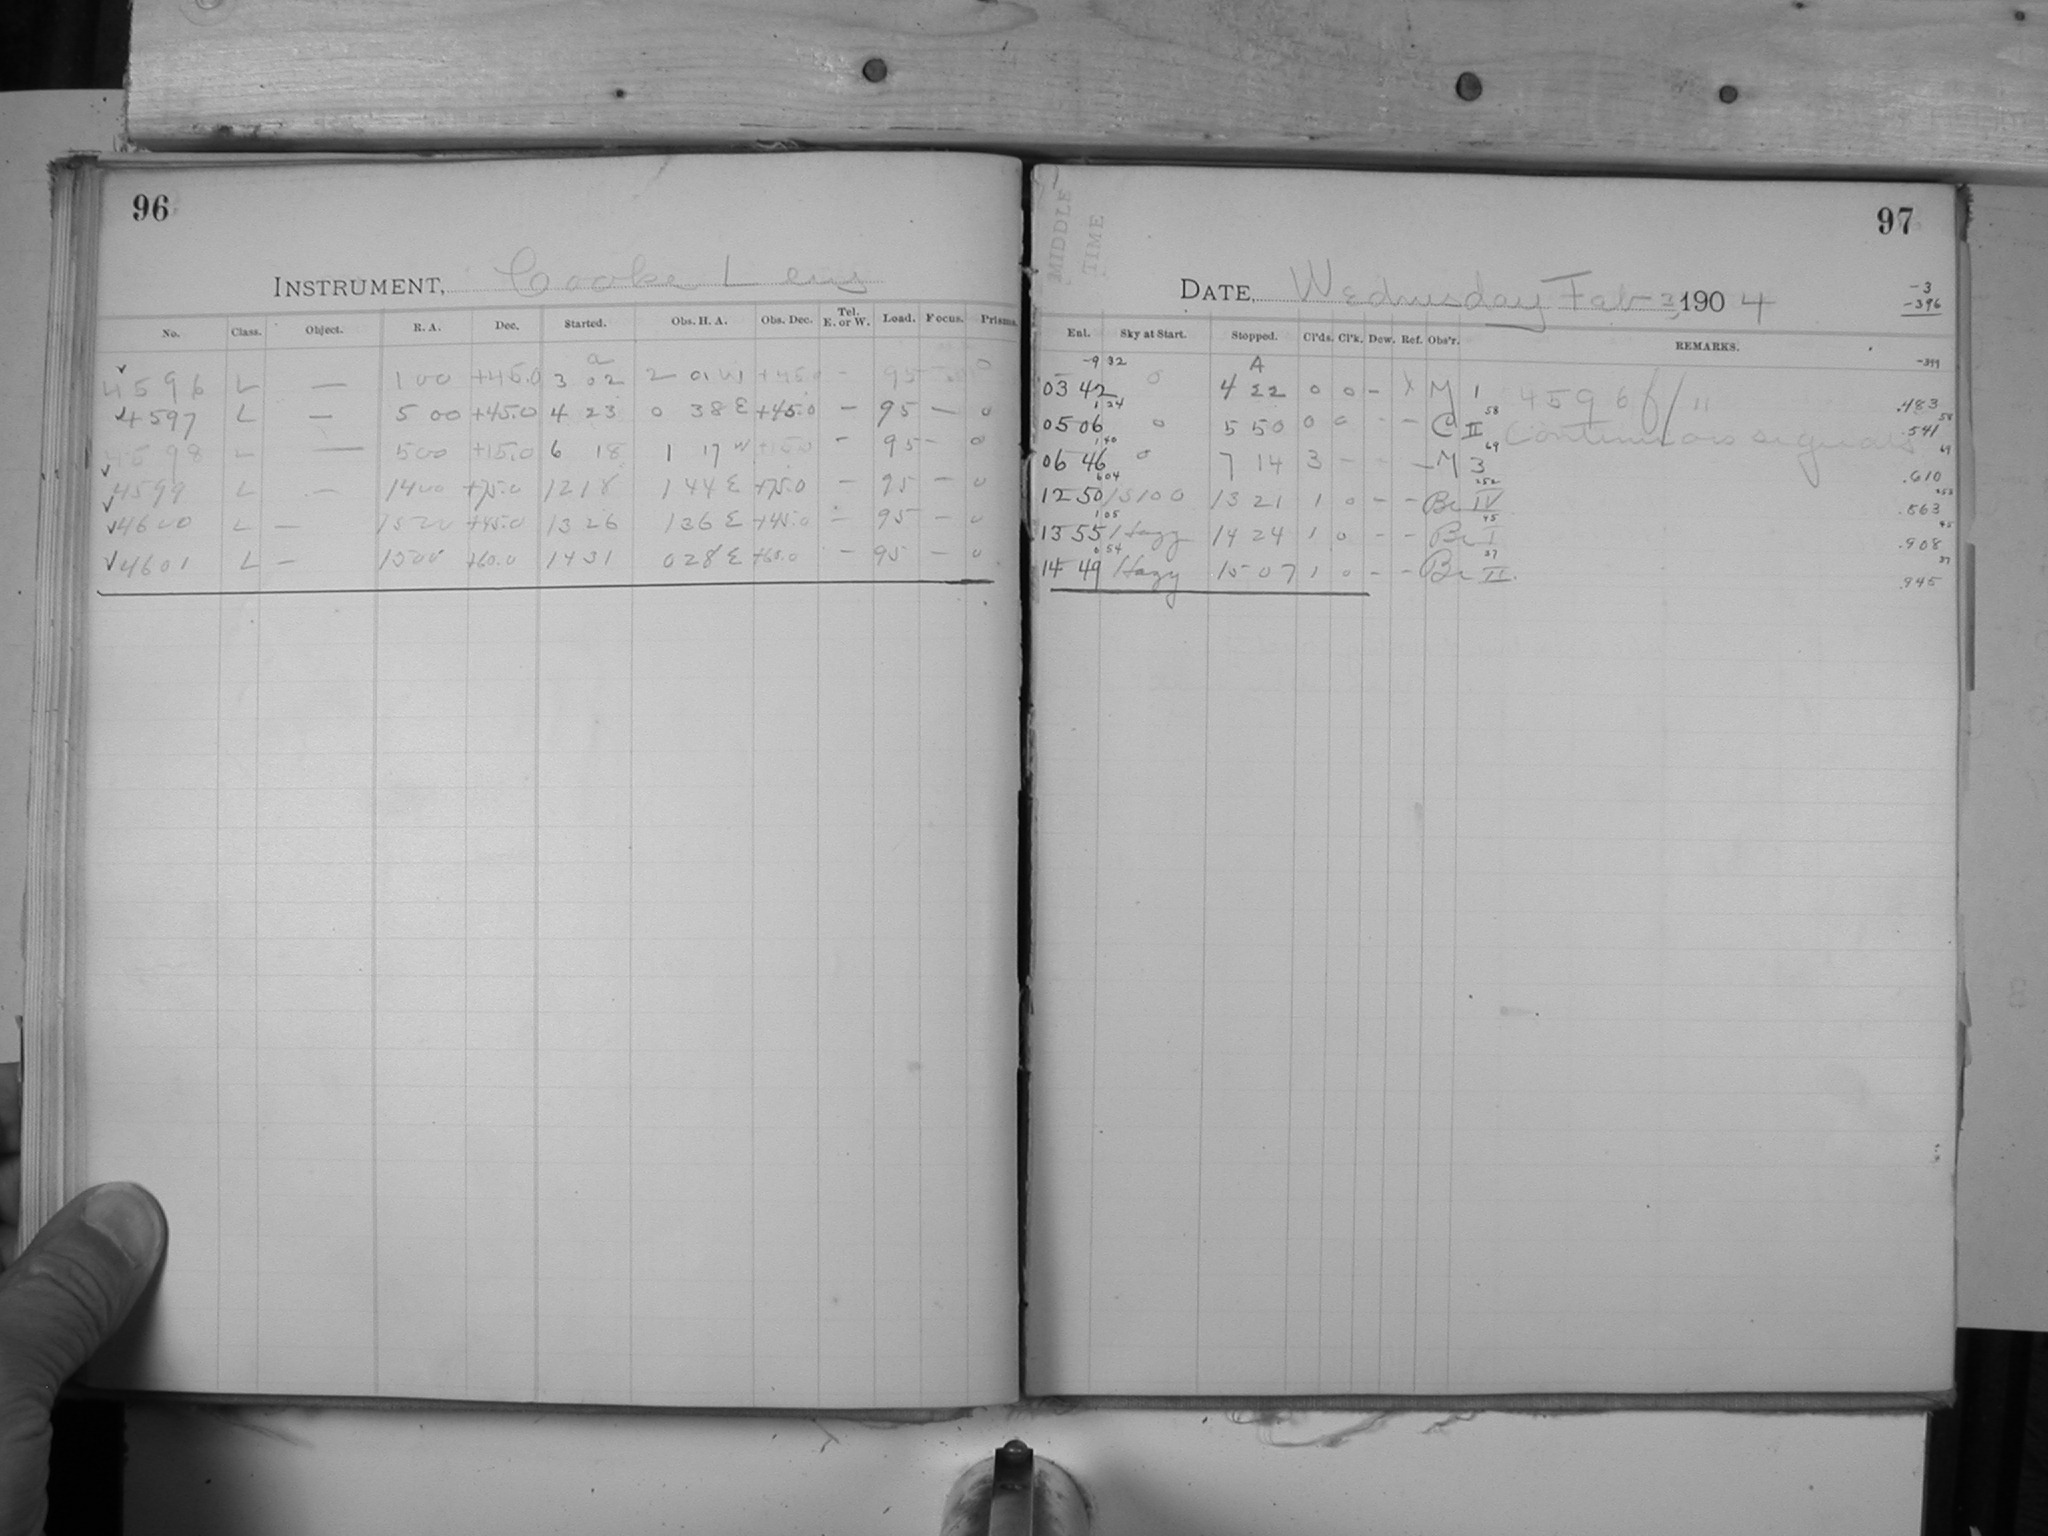 96
INSTRUMENT, Cooke Lens
No. Class. Object. R. A. Dec. Started. Obs. H. A. Obs. Dec. Tel. E. or W. Load. Focus. Prisms.
a
4596 L — 1 00 +45.0 3 02 2 01 W +45.0 - 95 - 0
4597 L — 5 00 +45.0 4 23 0 38 E +45.0 - 95 - 0
4598 L — 5 00 +15.0 6 18 1 17 W +15.0 - 95 - 0
4599 L — 14 00 +75.0 12 18 1 44 E +75.0 - 95 - 0
4600 L — +45.0 13 26 1 36 E +45.0 - 95 - 0
4601 L — 1500 +60.0 14 31 0 28 E +60.0 - 95 - 0
97
MIDDLE
TIME
DATE, Wednesday Feb 3, 1904
-3
-396
Enl. Sky at Start. Stopped. Cl'ds. Cl'k. Dew. Ref. Obs'r. REMARKS.
-9 32 A -399
03 42 0 4 22 0 0 - M 1 4596 .483
1 24 58 58
05 06 0 5 50 0 0 - - C II Continuous signals .541
1 40 69 69
06 46 0 7 14 3 - - - M 3 .610
6 04 252 253
12 50 13 21 1 0 - - Be IV .863
1 05 45 45
13 55 Hazy 14 24 1 0 - - Be I .908
0 54 37 37
14 49 Hazy 15 07 1 0 - - Be II. .945